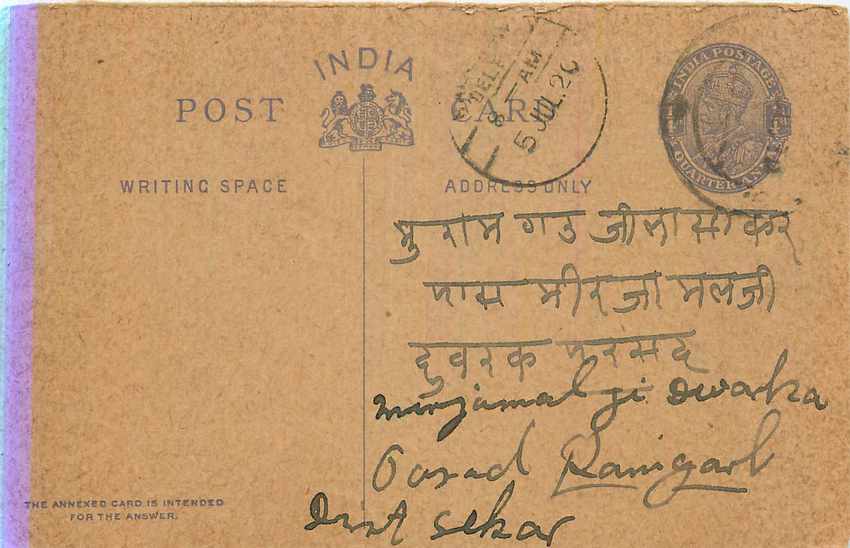 INDIA
POST CARD
DELHI
8 - AM
5 JUL. 26
INDIA POSTAGE
QUARTER ANNA
WRITING SPACE
ADDRESS ONLY
मु रामगड जीला सीकर
पास मीरजामलजी
दुवरक परसद
mirzamal ji Dwarka
Parsad Ramgarh
Dist Sekar
THE ANNEXED CARD IS INTENDED
FOR THE ANSWER.